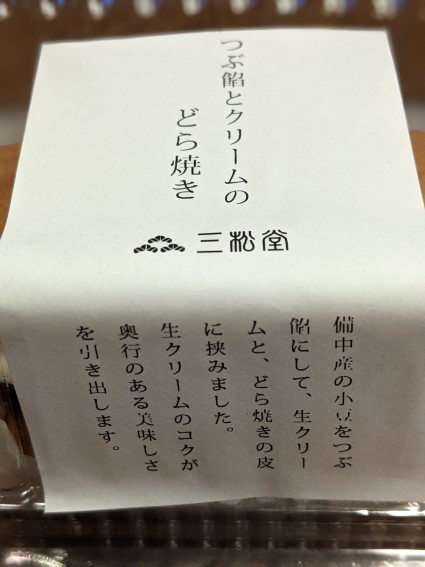 つぶ餡とクリームの
どら焼き
三松堂
備中産の小豆をつぶ
餡にして、生クリー
ムと、どら焼きの皮
に挟みました。
生クリームのコクが
奥行のある美味しさ
を引き出します。